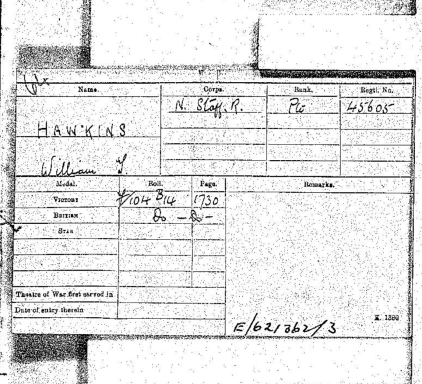 Name. Corps. Rank. Regtl. No.
N. Staff. R. Pte 45605
HAWKINS
William
Medal. Roll. Page. Remarks.
VICTORY 104 B14 1730
BRITISH Do -Do-
STAR
Theatre of War first served in
Date of entry therein
K. 1380
E/621362/3